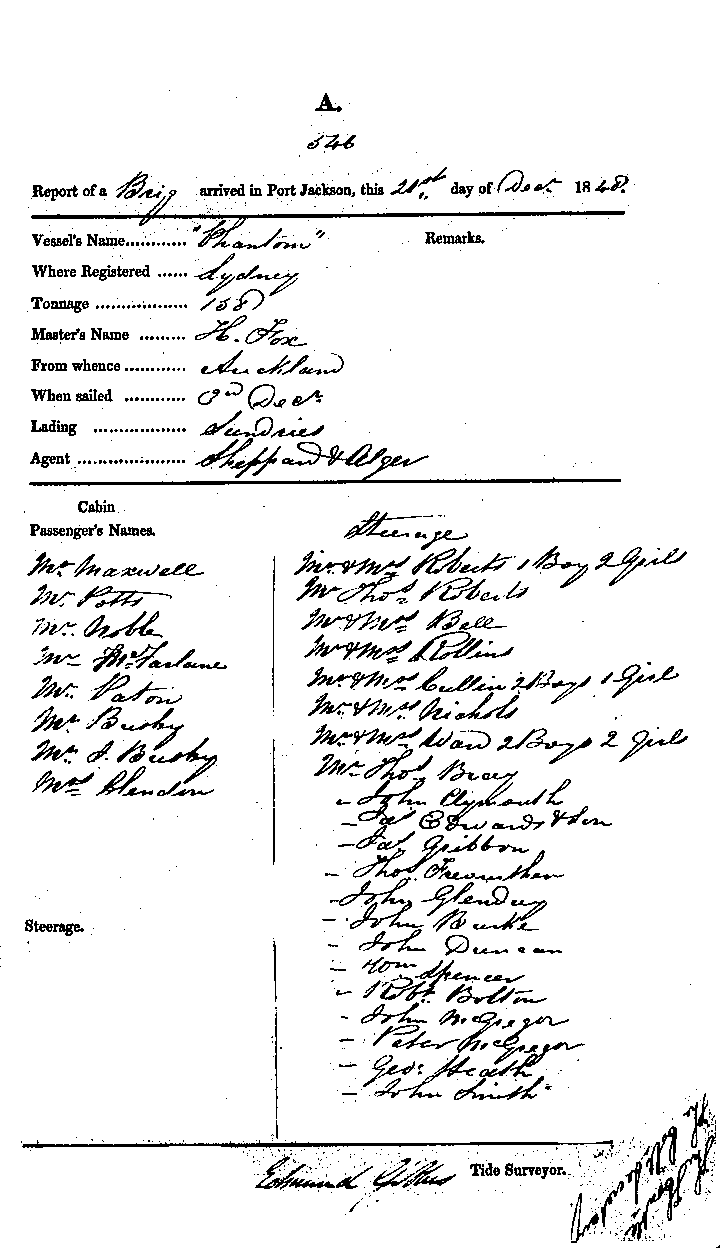 A.
546
Report of a Brig arrived in Port Jackson, this 21st day of Decr 1848.
Vessel's Name............ "Phantom" Remarks.
Where Registered ...... Sydney
Tonnage .................. 138
Master's Name ......... H. Fox
From whence............ Auckland
When sailed ............ 3rd Decr
Lading .................. Sundries
Agent ..................... Sheppard & Alger
Cabin
Passenger's Names.
Mr Maxwell
Mr Potts
Mr Noble
Mr McFarlane
Mr Paton
Mr Busby
Mr J. Busby
Mrs Clendon
Steerage.
Steerage
Mr & Mrs Roberts 1 Boy 2 Girls
Mr Thos Roberts
Mr & Mrs Bell
Mr & Mrs Rollins
Mr & Mrs Cullin 2 Boys 1 Girl
Mr & Mrs Nichols
Mr & Mrs Ward 2 Boys 2 Girls
Mr Thos Bray
" John Clymouth
– Jas Edwards & Son
– Jas Gribbon
– Thos
– John Glenduy
– John Burke
– John Duncan
– Wm Spencer
" Robt Bolton
– John McGregor
– Peter McGregor
– Geo. Heath
– John Smith
Edmund Tide Surveyor.
The